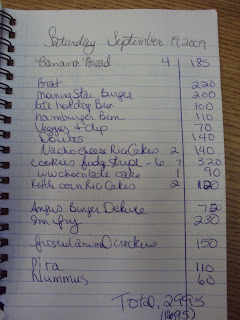 Saturday September 19, 2009
Banana Bread 4 185
Brat 220
Morning Star Burger 200
lite hotdog Bun 100
hamburger Bun 110
Veggies + dip 70
Doritos 140
Nacho Cheese Ric Cakes 2 140
cookies fudge stripe - 6 7 320
ww chocolate cake 1 90
Kettle corn Ric Cakes 2 120
Angus Burger Deluxe 750
Sm fry 230
frosted animal crackers 150
Pita 110
Hummus 60
Total, 2995
(1695)